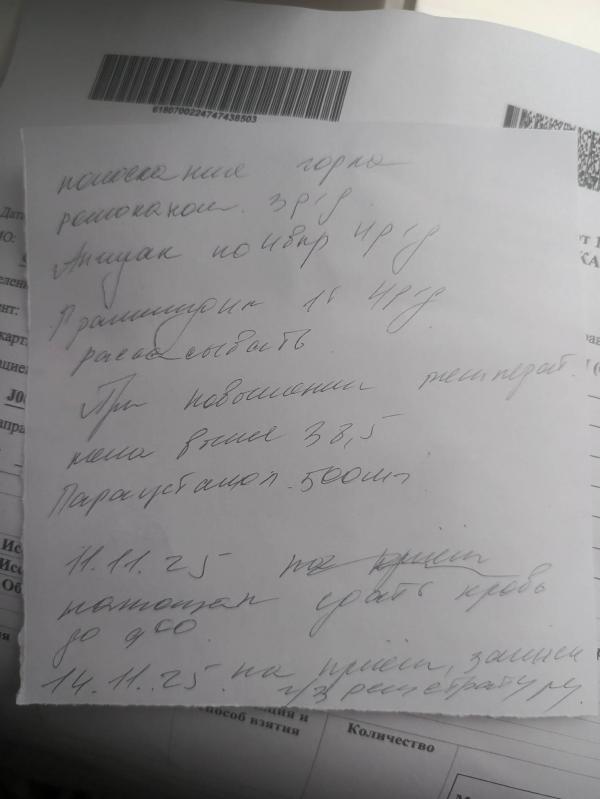 6180700224747438503
полоскание горла
ротоканом 3 р/д
по 4 впр 4 р/д
Граммидин 1т 4 р/д
рассасывать
При повышении температ.
тела выше 38,5
Парацетамол 500мг
11.11.25 на приём
натощак сдать кровь
до 9 00
14.11.25 на приём, запись
ч/з регистратуру
способ взятия
Количество